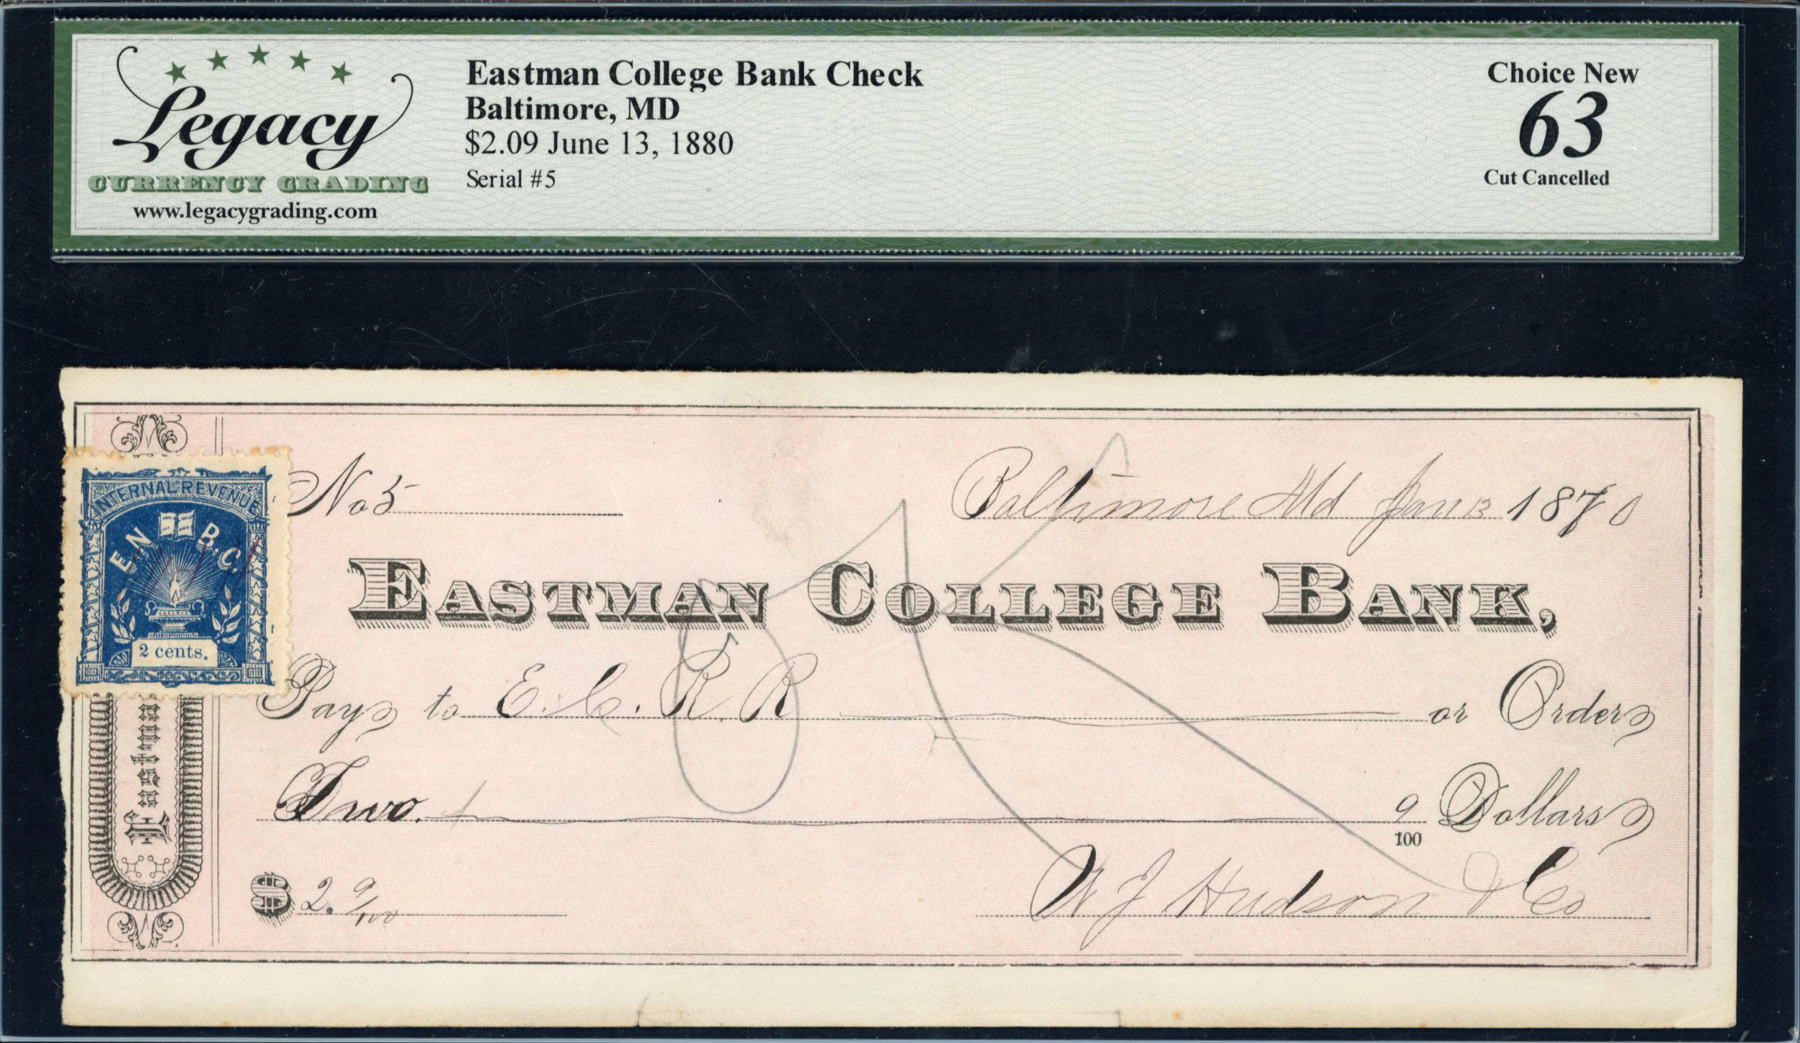 Legacy
CURRENCY GRADING
www.legacygrading.com
Eastman College Bank Check
Baltimore, MD
$2.09 June 13, 1880
Serial #5
Choice New
63
Cut Cancelled
No 5
Baltimore Md Jan 13 1870
INTERNAL REVENUE
E. N B. C.
2 cents.
EASTMAN COLLEGE BANK,
Pay to E. C. R. R. or Order
Two. 9/100 Dollars
$ 2. 9/100
W J Hudson & Co
Eastman